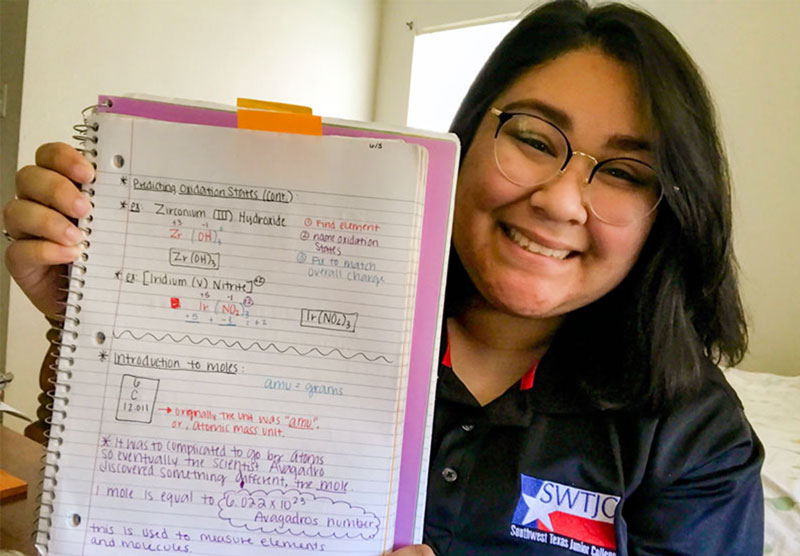 6/3
* Predicting Oxidation States (cont.):
* ex: Zirconium (III) Hydroxide
+3 -1
Zr (OH)
Zr(OH)3
① Find element
② name oxidation
states
③ Fix to match
overall change
* ex: [Iridium (V) Nitrite]+2
+5 -1 +2
Ir (NO2)3
+5 + -3 = +2
Ir(NO2)3
* Introduction to moles:
6
C
12.011
amu = grams
→ originally the unit was "amu",
or, atomic mass unit.
* It was to complicated to go by atoms
so eventually the scientist Avagadro
discovered something different, the mole.
1 mole is equal to 6.022 x 10 23
Avagadros number
this is used to measure elements
and molecules.
SWTJC
Southwest Texas Junior College